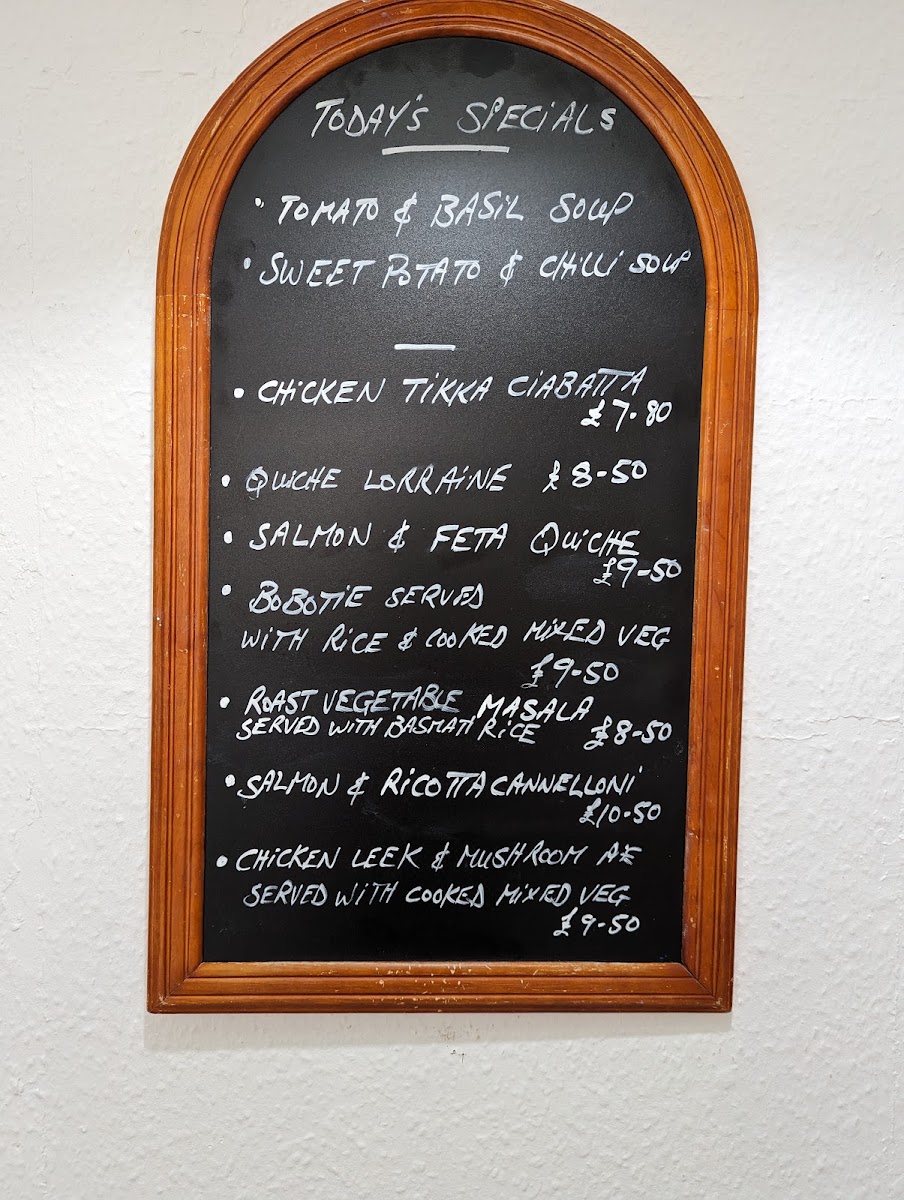 TODAY'S SPECIALS
• TOMATO & BASIL SOUP
• SWEET POTATO & CHILLI SOUP
• CHICKEN TIKKA CIABATTA
£7.80
• QUICHE LORRAINE £8-50
• SALMON & FETA QUICHE
£9-50
• BOBOTIE SERVED
WITH RICE & COOKED MIXED VEG
£9-50
• ROAST VEGETABLE MASALA
SERVED WITH BASMATI RICE £8-50
• SALMON & RICOTTA CANNELLONI
£10.50
• CHICKEN LEEK & MUSHROOM PIE
SERVED WITH COOKED MIXED VEG
£9-50